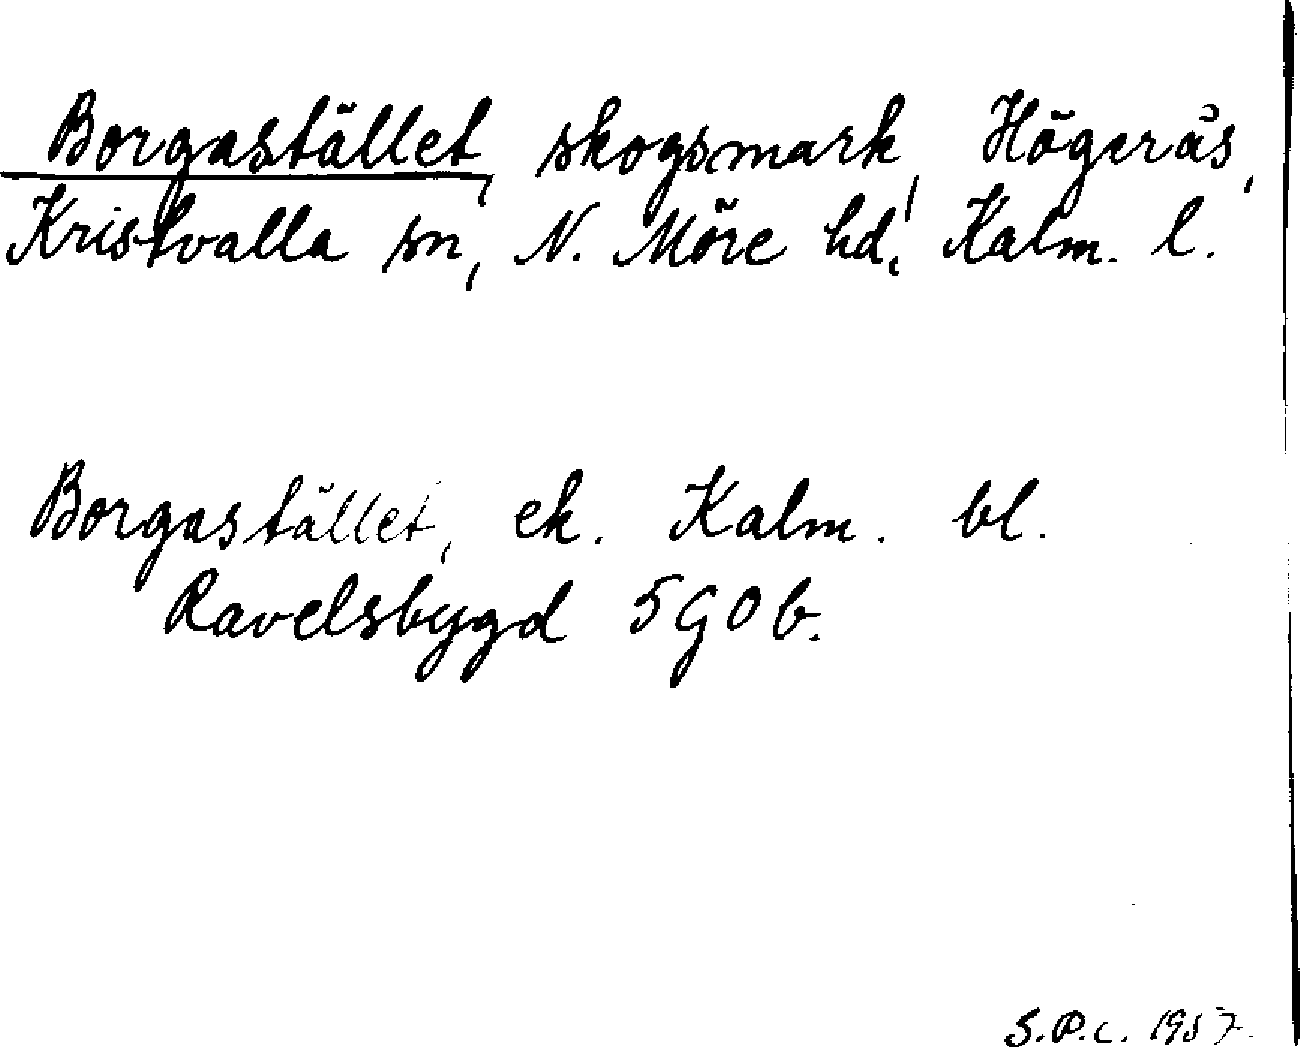 Borgastället, skogsmark, Högerås,
Kristvalla sn, N. Möre hd, Kalm. l.
Borgastället, ek. Kalm. bl.
Ravelsbygd 5G0b.
S.P.C. 1957.